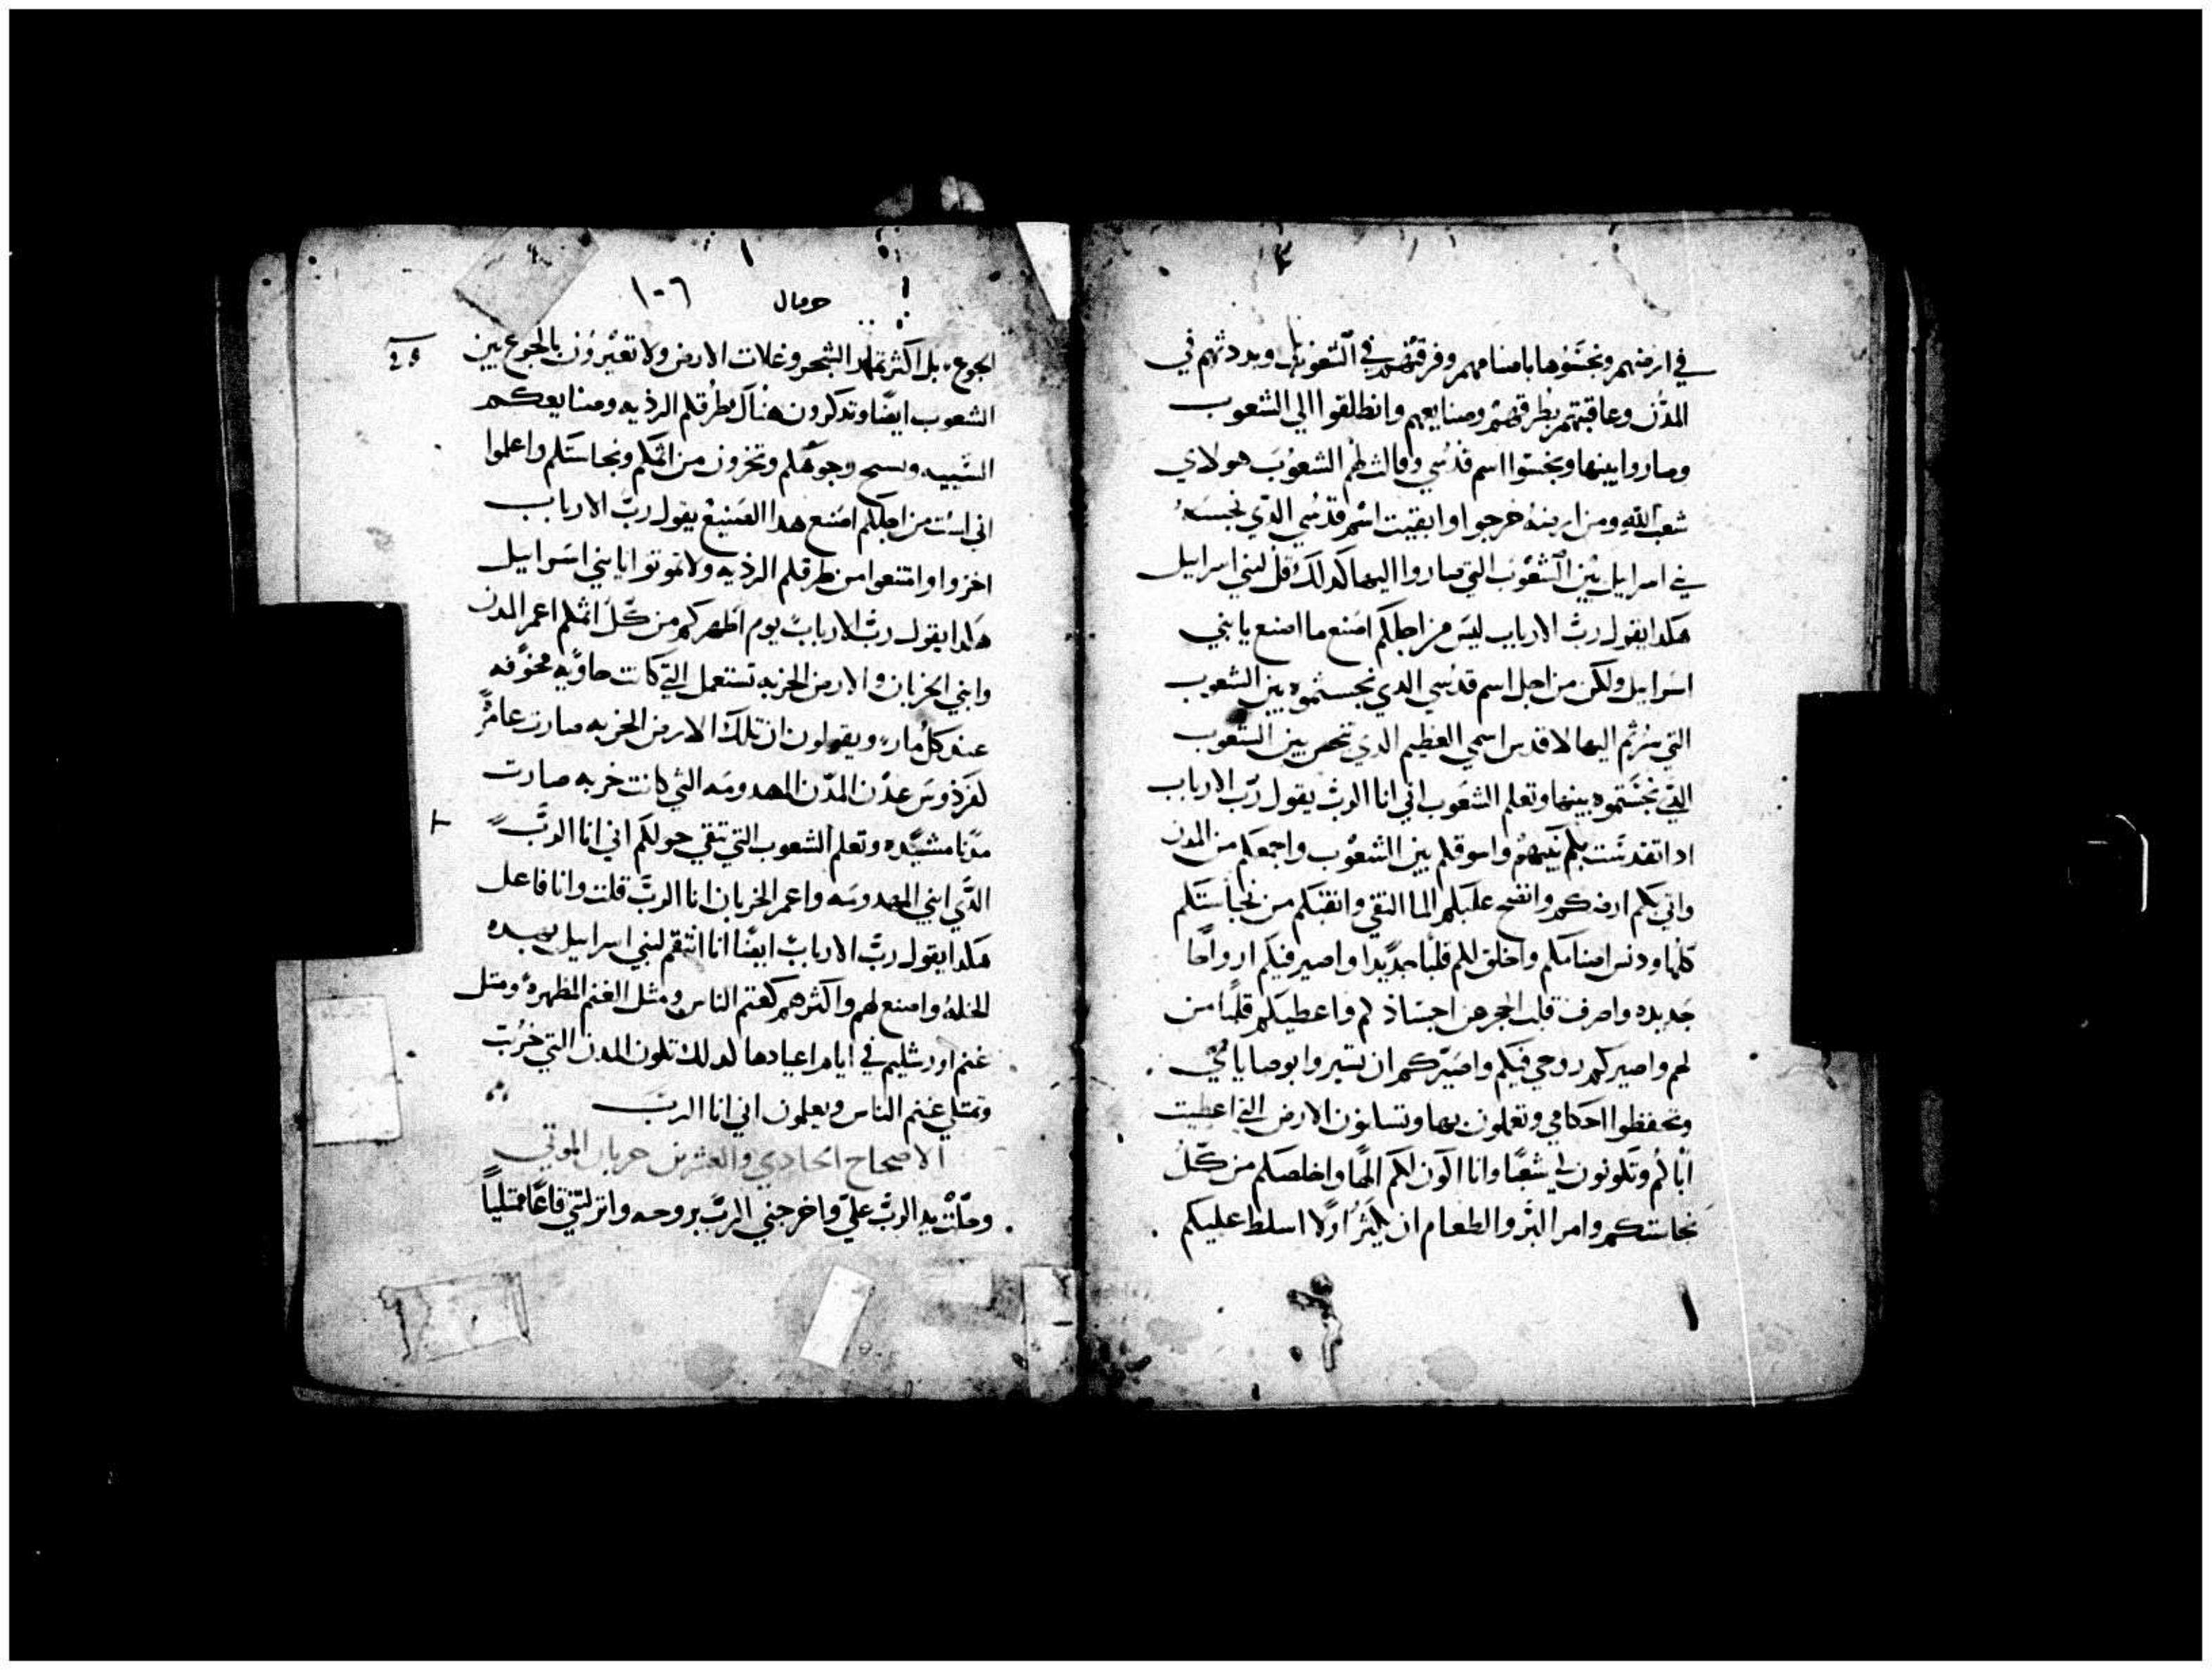 في ارضهم ونجسوها باصنامهم وفرقتهم في الشعوب وبددتهم في
المدن وعاقبتهم بطرقهم وصنايعهم وانطلقوا الي الشعوب
وصاروا بينها ونجسوا اسم قدسي وقالت لهم الشعوب هولاي
شعب الله ومن ارضه خرجوا وابقيت اسم قدسي الدي نجسه
في اسرايل بين الشعوب التي صاروا اليها كدلك قل لبني اسرايل
هكدا يقول رب الارباب ليس من اجلكم اصنع ما اصنع يا بني
اسرايل ولكن من اجل اسم قدسي الدي نجستموه بين الشعوب
التي سرتم اليها لاقدس اسمي العظيم الدي تنجس بين الشعوب
التي نجستموه بينها وتعلم الشعوب اني انا الرب يقول رب الارباب
ادا تقدست بكم بينهم واسوقكم بين الشعوب واجمعكم من المدن
واتي بكم ارضكم وانضح عليكم الما النقي وانقيكم من نجاستكم
كلها ودنس اصنامكم واخلق لكم قلبا جديدا واصير فيكم ارواحا
جديده واصرف قلب الحجر عن اجسادكم واعطيكم قلبا من
لحم واصيركم روحي فيكم واصيركم ان تسيروا بوصاياي
وتحفظوا احكامي وتعملون بها وتسكنون الارض التي اعطيت
اباكم وتكونون لي شعبا وانا اكون لكم الها واخلصكم من كل
نجاستكم وامر البر والطعام ان يكثر اولا اسلط عليكم
حزقيال ١٠٦
الجوع بل اكثر ثمار الشجر وغلات الارض ولا تعيرون بالجوع بين
الشعوب ايضا وتدكرون هناك طرقكم الرديه وصنايعكم
السييه وتسمج وجوهكم وتخزون من اثمكم ونجاستكم واعلموا
اني لست من اجلكم اصنع هدا الصنيع يقول رب الارباب
اخزوا وامتنعوا من طرقكم الرديه ولا تموتوا يا بني اسرايل
هكدا يقول رب الارباب يوم اطهركم من كل اثمكم اعمر المدن
وابني الخربان والارض الخربه تستعمل التي كانت خاويه مخوفه
عند كل مار ويقولون ان تلك الارض الخربه صارت عامره
كفردوس عدن المدن المهدومه التي كانت خربه صارت
مدنا مشيده وتعلم الشعوب التي تبقي حولكم اني انا الرب
الدي ابني المهدومه واعمر الخربان انا الرب قلت وانا فاعل
هكدا يقول رب الارباب ايضا انا انتقم لبني اسرايل بهده
الخله واصنع لهم واكثرهم كغنم الناس ومثل الغنم المطهره ومثل
غنم اورشليم في ايام اعيادها كدلك تكون المدن التي خربت
وتمتلي غنم الناس ويعلمون اني انا الرب
الاصحاح الحادي والعشرين خربان الموتي
وحلت يد الرب علي واخرجني الرب بروحه وانزلني قاعا ممتليا